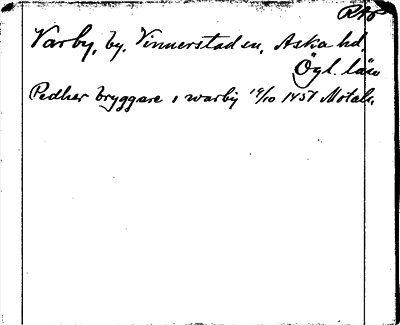 RAP
Varby, by. Vinnerstad sn, Aska hd.
Ögl. län
Pedher bryggare i warby 19/10 1457 Motala.